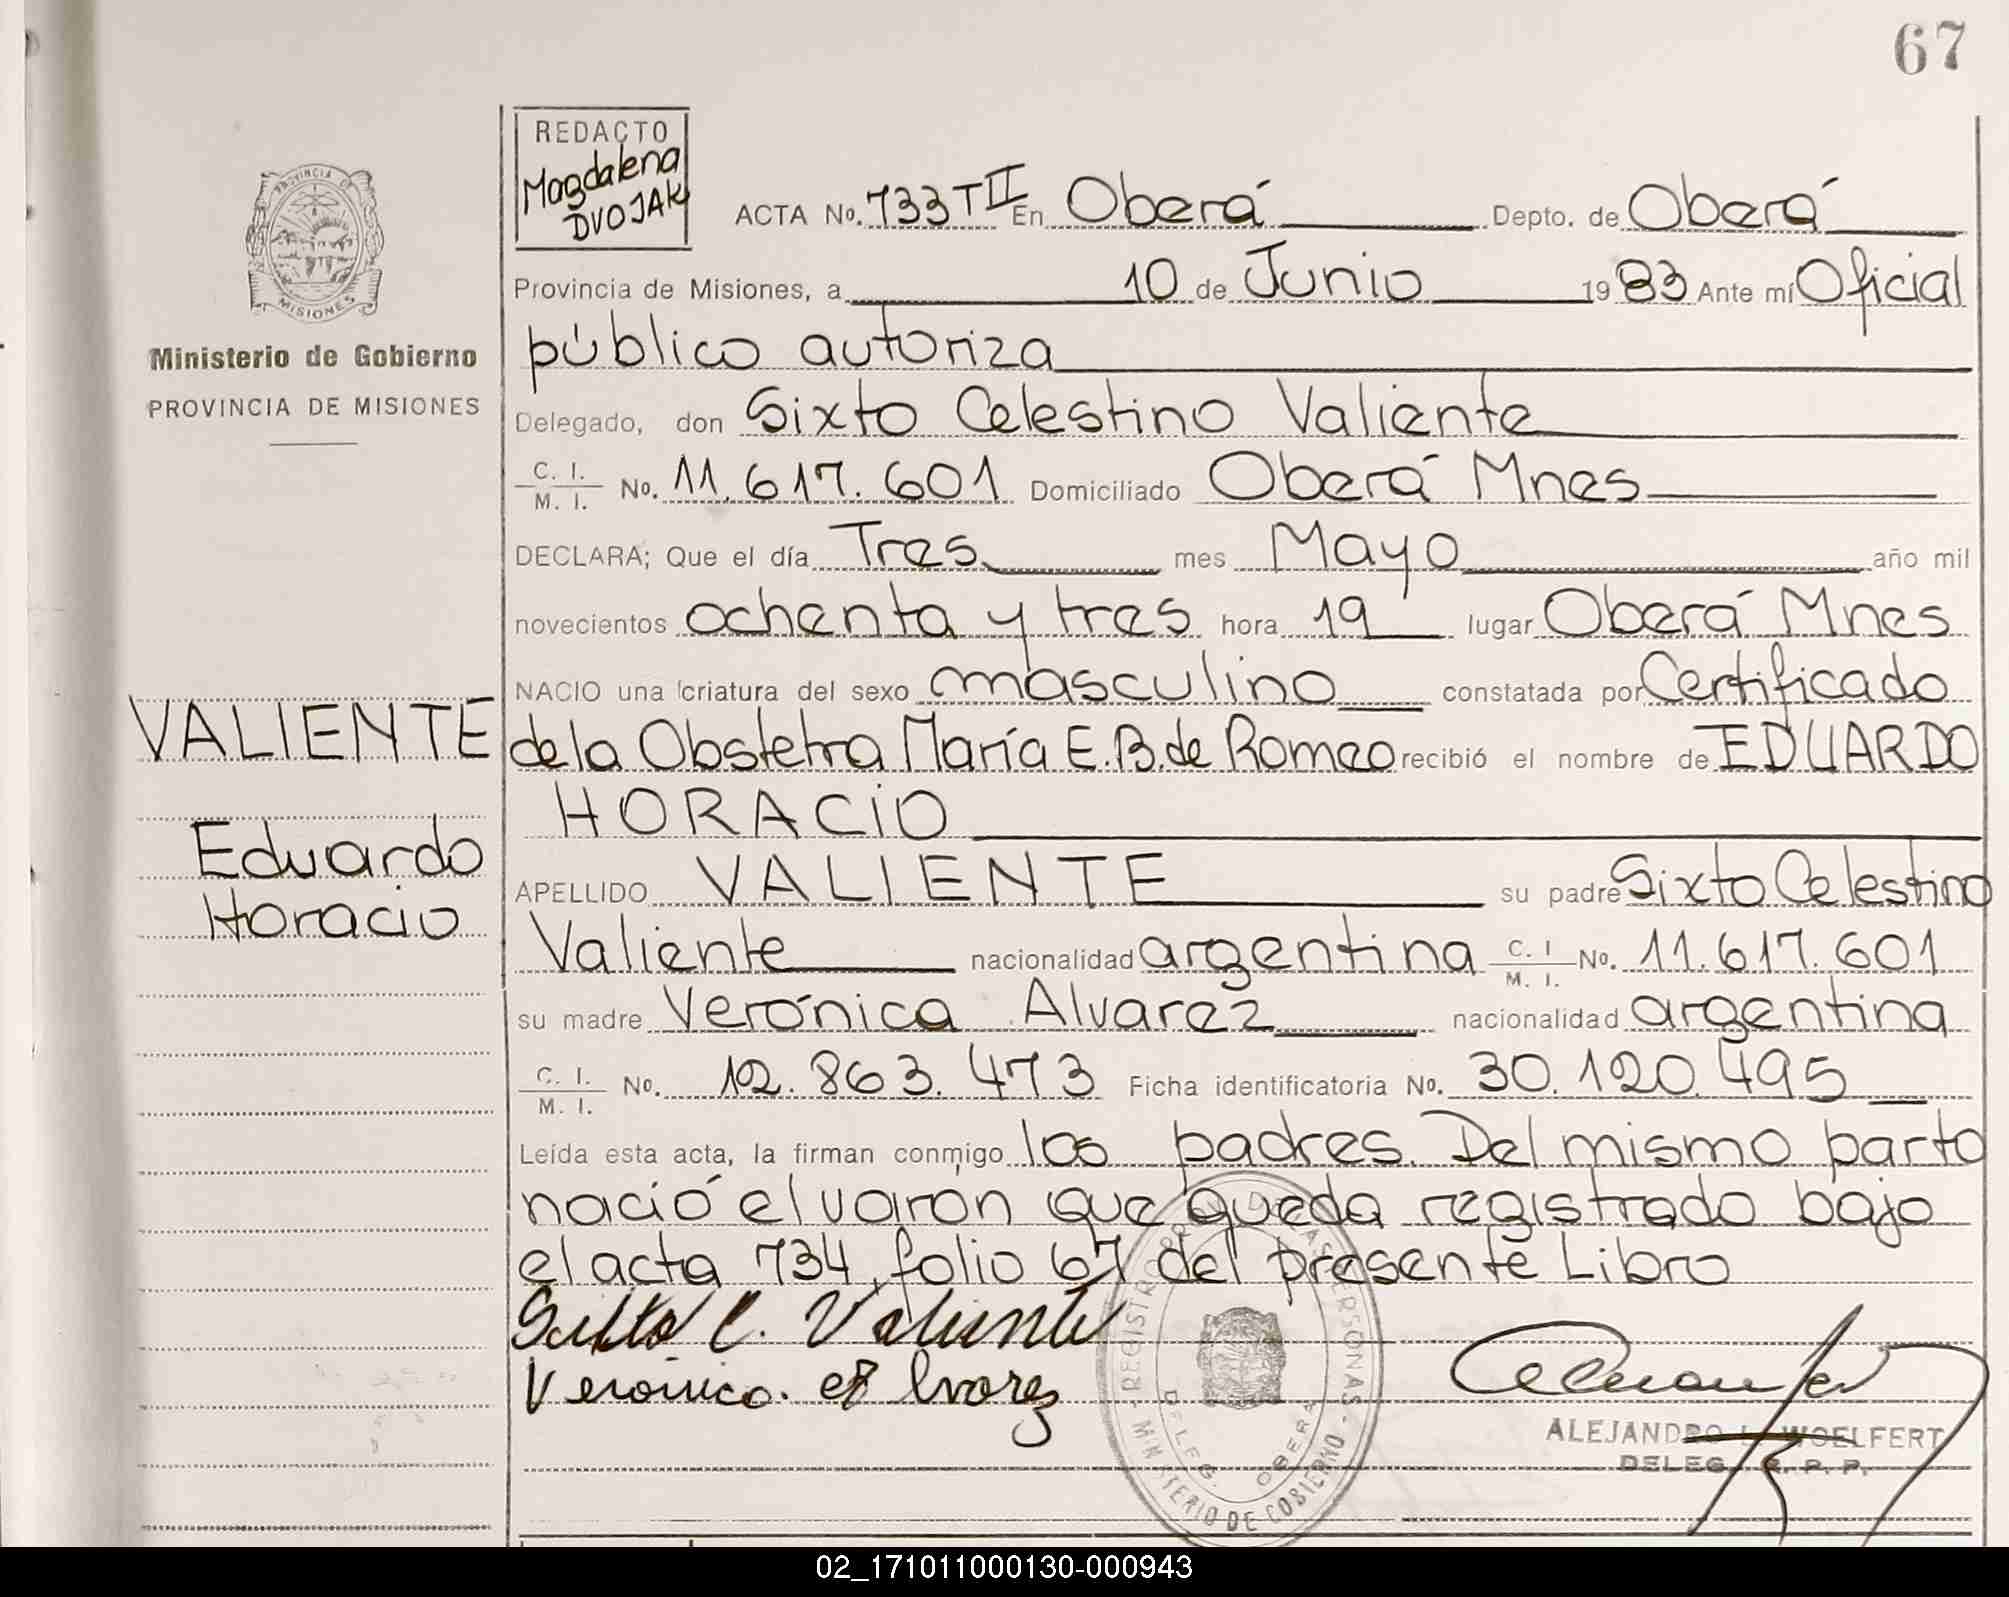 67
REDACTO
Magdalena
DVOJAK
PROVINCIA DE
MISIONES
Ministerio de Gobierno
PROVINCIA DE MISIONES
ACTA No. 733 T II En Oberá Depto. de Oberá
Provincia de Misiones, a 10 de Junio 1983 Ante mí Oficial
público autoriza
Delegado, don Sixto Celestino Valiente
C. I. / M. I. No. 11.617.601 Domiciliado Oberá Mnes
DECLARA; Que el día Tres mes Mayo año mil
novecientos ochenta y tres hora 19 lugar Oberá Mnes
NACIO una criatura del sexo masculino constatada por Certificado
VALIENTE
de la Obstetra María E. B. de Romeo recibió el nombre de EDUARDO
HORACIO
Eduardo
Horacio
APELLIDO VALIENTE su padre Sixto Celestino
Valiente nacionalidad argentina C. I / M. I. No. 11.617.601
su madre Verónica Alvarez nacionalidad argentina
C. I. / M. I. No. 12.863.473 Ficha identificatoria No. 30.120.495
Leída esta acta, la firman conmigo los padres. Del mismo parto
nació el varón que queda registrado bajo
el acta 734, folio 67 del presente Libro
Sixto C. Valiente
Verónica Alvarez
REGISTRO PROV. DE LAS PERSONAS - MINISTERIO DE GOBIERNO -
DELEG. OBERA
ALEJANDRO L. WOELFERT
DELEG. R. P. P.
02_171011000130-000943